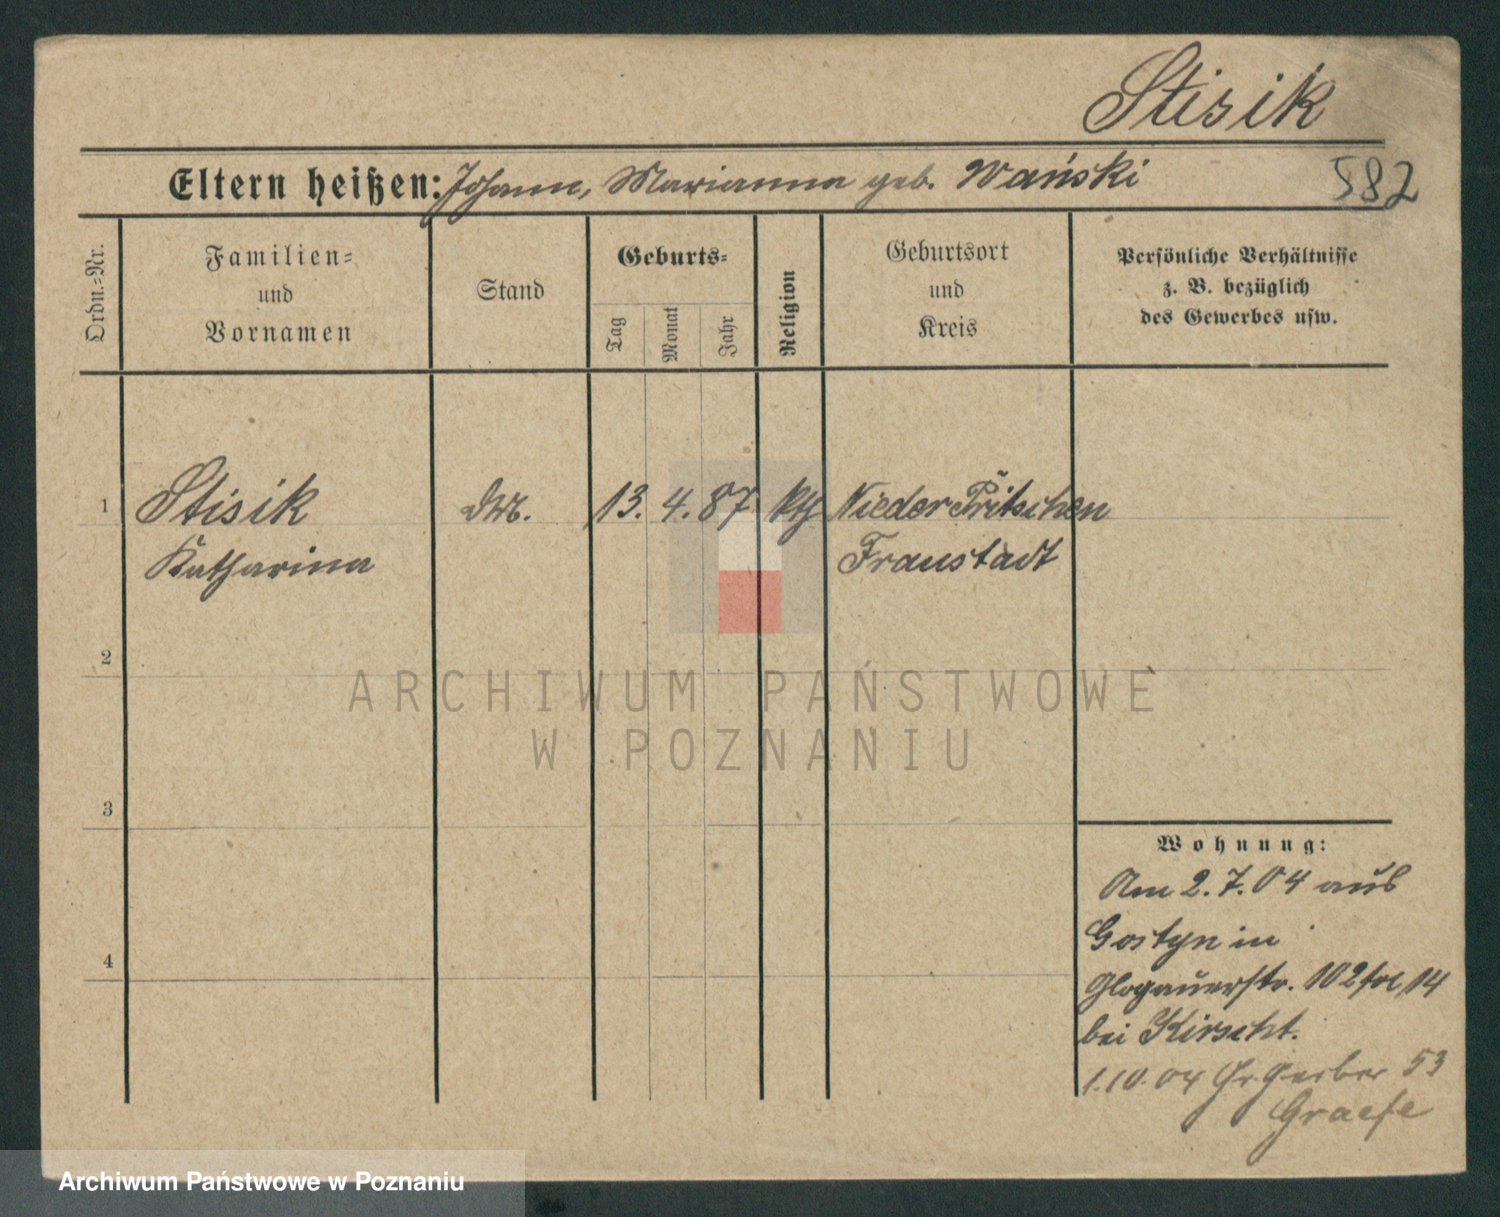 Stisik
Eltern heißen: Johann, Marianna geb. Wański
582
Ordn.-Nr.
Familien-
und
Vornamen
Stand
Geburts-
Tag
Monat
Jahr
Religion
Geburtsort
und
Kreis
Persönliche Verhältnisse
z. B. bezüglich
des Gewerbes usw.
1 Stisik 13. 4. 87 kth Nieder Pritschen
Katharina Fraustadt
2
ARCHIWUM PAŃSTWOWE
W POZNANIU
3
Wohnung:
Am 2.7.04 aus
Gostyn in
Glogauerstr. 102 14
bei Kirscht.
1.10.04 Gr. Gerber 53
Graefe
4
Archiwum Państwowe w Poznaniu